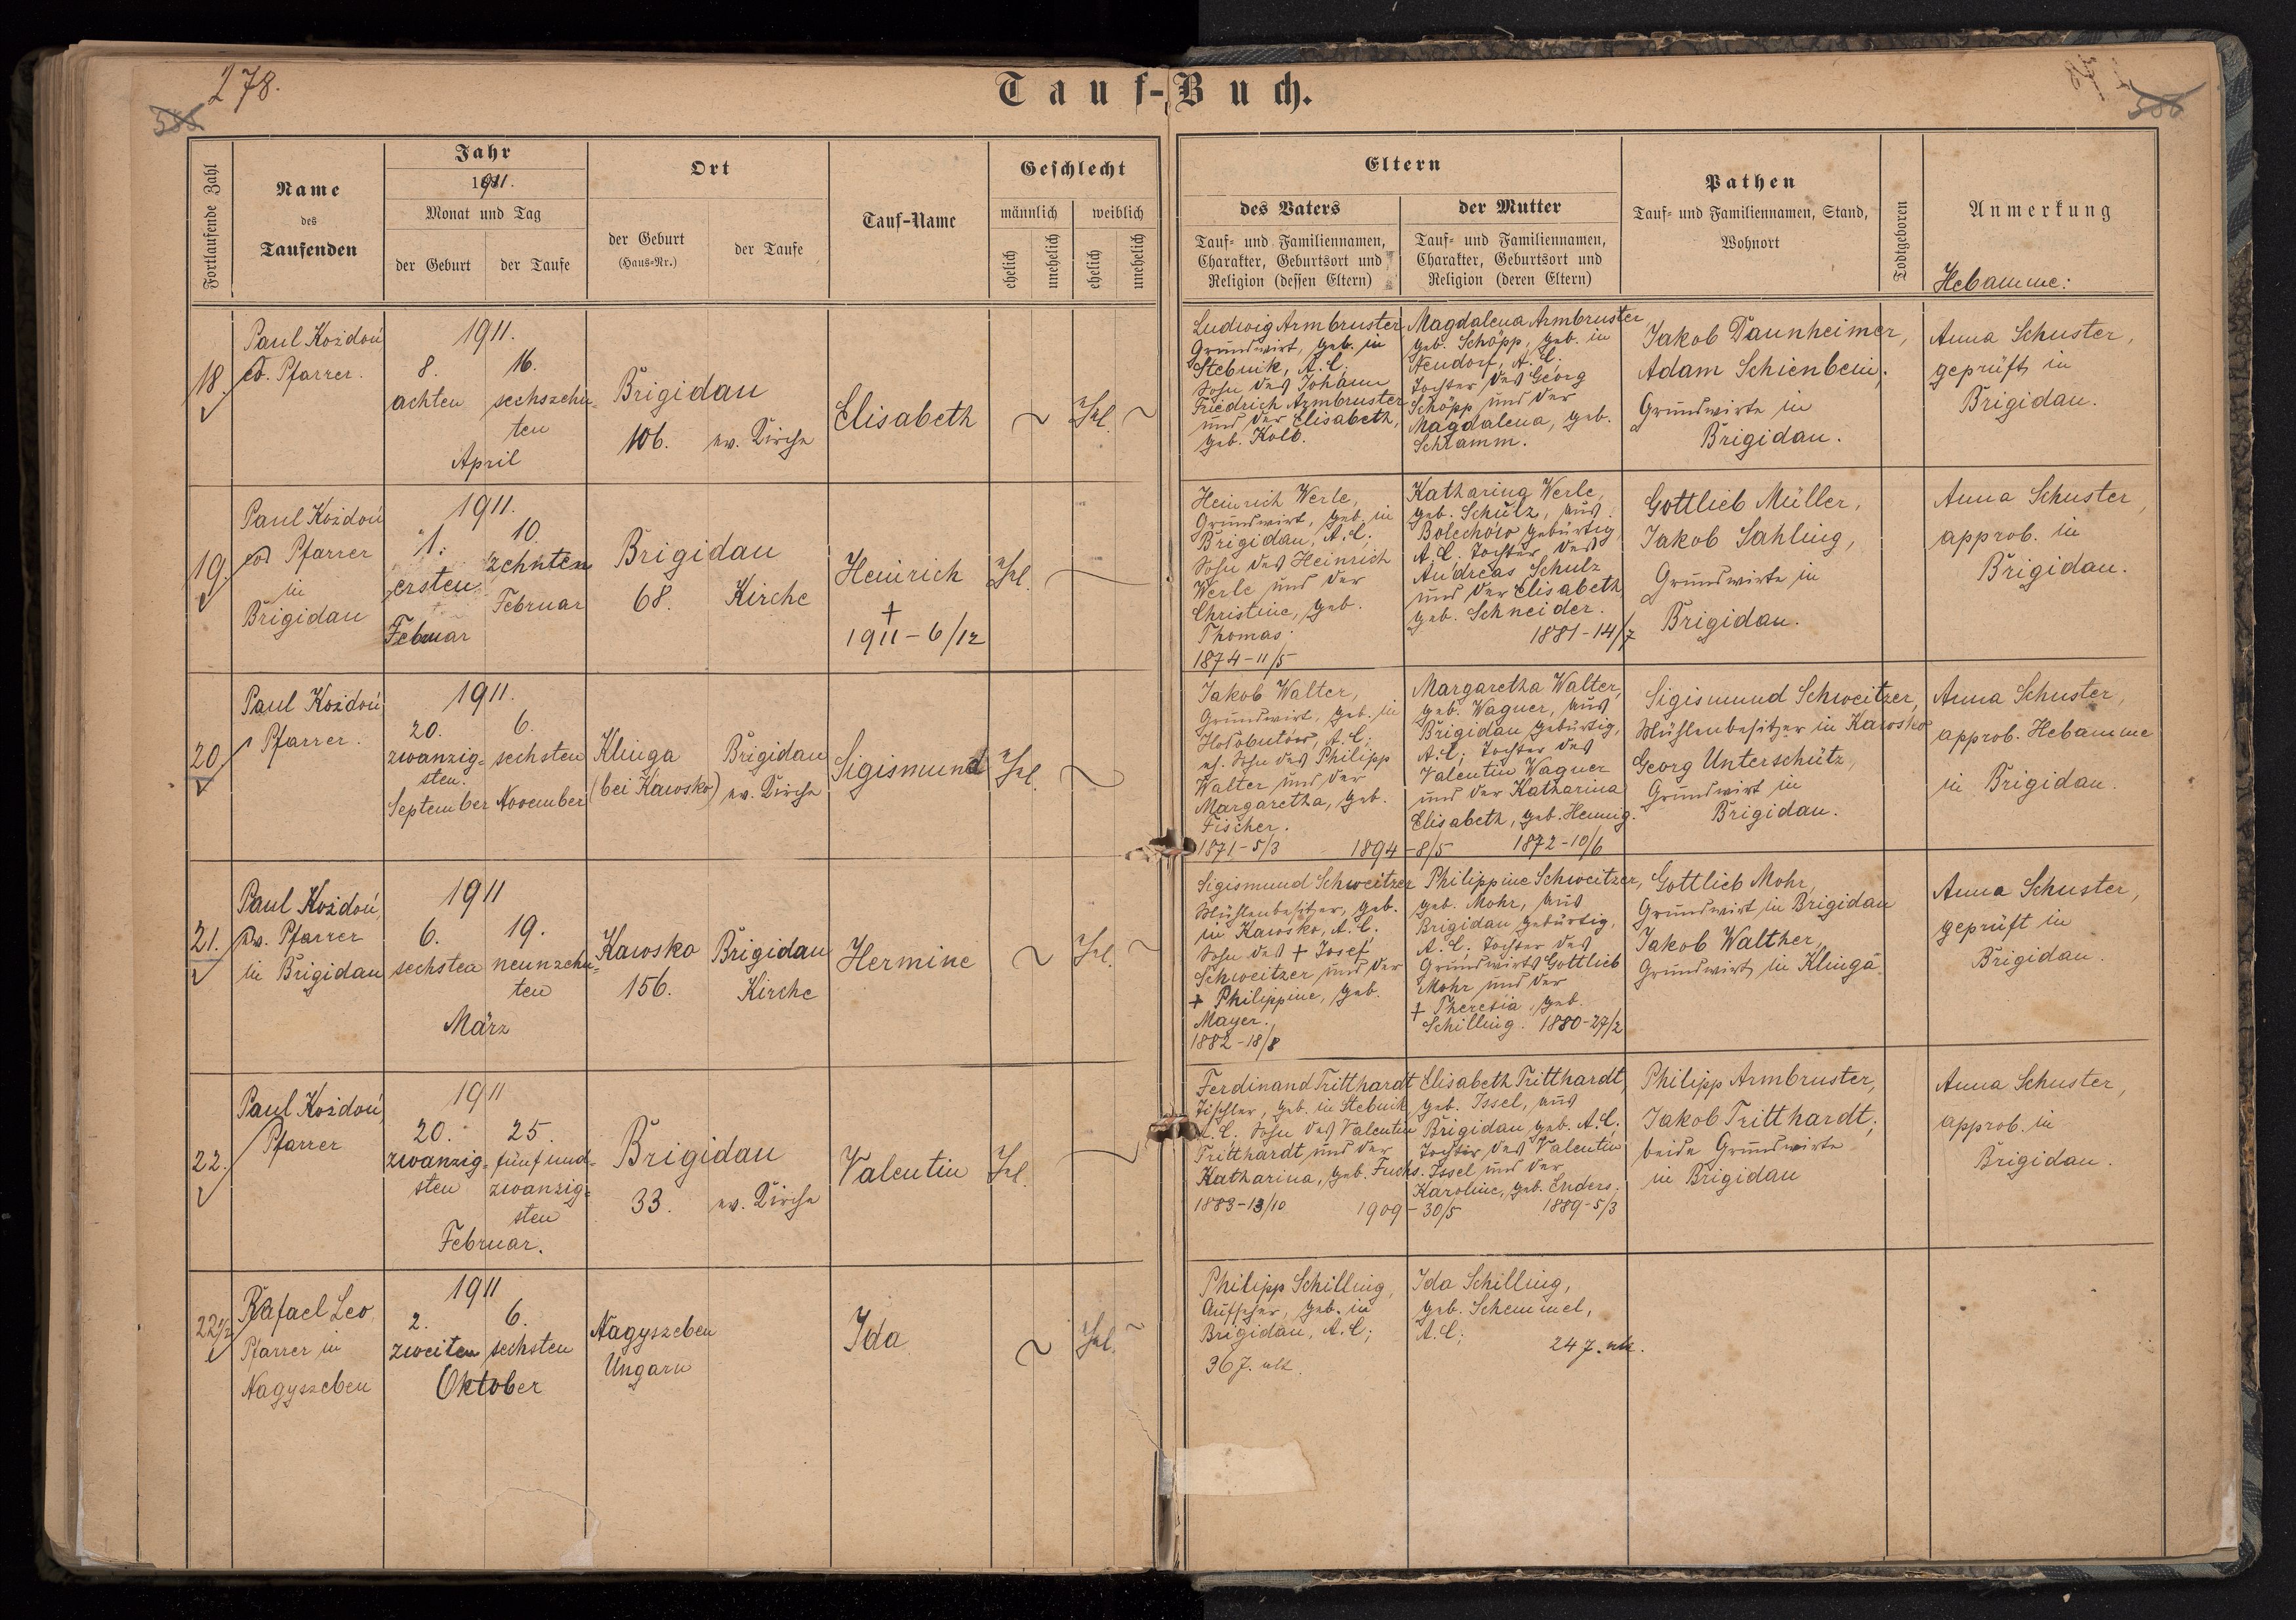 278.
Tauf-Buch.
Fortlaufende Zahl
Name
des
Taufenden
Jahr
1911.
Monat und Tag
der Geburt
der Taufe
Ort
der Geburt
(Haus-Nr.)
der Taufe
Tauf-Name
Geschlecht
männlich
weiblich
ehelich
unehelich
ehelich
unehelich
Eltern
des Vaters
Tauf- und Familiennamen,
Charakter, Geburtsort und
Religion (dessen Eltern)
der Mutter
Tauf- und Familiennamen,
Charakter, Geburtsort und
Religion (deren Eltern)
Pathen
Tauf- und Familiennamen, Stand,
Wohnort
Todtgeboren
Anmerkung
Hebamme:
18.
Paul Kożdoń,
Pfarrer.
1911.
8.
achten
16.
sechszehn-
ten
April
Brigidau
106.
ev. Kirche
Elisabeth
Ehel.
Ludwig Armbruster,
Grundwirt, geb. in
Stebnik, A.C.
Sohn des Johann
Friedrich Armbruster
und der Elisabeth,
geb. Kolb.
Magdalena Armbruster
geb. Schöpp, geb. in
Neudorf, A.C.
Tochter des Georg
Schöpp und der
Magdalena, geb.
Schramm.
Jakob Daunheimer,
Adam Schienbein,
Grundwirte in
Brigidau.
Anna Schuster,
geprüft in
Brigidau.
19.
Paul Kożdoń
Pfarrer
in
Brigidau
1911.
1.
ersten
Februar
10.
zehnten
Februar
Brigidau
68.
Kirche
Heinrich
+
1911-6/12
Ehel.
Heinrich Werle,
Grundwirt, geb. in
Brigidau, A.C.
Sohn des Heinrich
Werle und der
Christine, geb.
Thomas.
1874-11/5
Katharina Werle,
geb. Schulz, aus
Bolechów gebürtig,
A.C. Tochter des
Andreas Schulz
und der Elisabeth
geb. Schneider.
1881-14/7
Gottlieb Müller,
Jakob Sahling,
Grundwirte in
Brigidau.
Anna Schuster,
approb. in
Brigidau.
20.
Paul Kożdoń
Pfarrer.
1911.
20.
zwanzig-
sten.
September
6.
sechsten
November
Klinga
(bei Kawsko)
Brigidau
ev. Kirche
Sigismund
Ehel.
Jakob Walter,
Grundwirt, geb. in
Hołobutów, A.C.
eh. Sohn des Philipp
Walter und der
Margaretha, geb.
Fischer.
1871-5/3
1894-8/5
Margaretha Walter,
geb. Wagner, aus
Brigidau gebürtig,
A.C; Tochter des
Valentin Wagner
und der Katharina
Elisabeth, geb. Hennig.
1872-10/6
Sigismund Schweitzer,
Mühlenbesitzer in Kawsko
Georg Unterschütz,
Grundwirt in
Brigidau.
Anna Schuster,
approb. Hebamme
in Brigidau.
21.
Paul Kożdoń,
ev. Pfarrer
in Brigidau
1911
6.
sechsten
19.
neunzehn-
ten
März
Kawsko
156.
Brigidau
Kirche
Hermine
Ehel.
Sigismund Schweitzer
Mühlenbesitzer, geb.
in Kawsko, A.C.
Sohn des + Josef
Schweitzer und der
+ Philippine, geb.
Mayer.
1882-18/8
Philippine Schweitzer,
geb. Mohr, aus
Brigidau gebürtig,
A.C, Tochter des
Grundwirts Gottlieb
Mohr und der
+ Theresia, geb.
Schilling. 1880-27/2
Gottlieb Mohr,
Grundwirt in Brigidau
Jakob Walther,
Grundwirt in Klinga.
Anna Schuster,
geprüft in
Brigidau.
22.
Paul Kożdoń,
Pfarrer
1911
20.
zwanzig-
sten
25.
fünfund-
zwanzig-
sten
Februar.
Brigidau
33.
ev. Kirche
Valentin
Ehel.
Ferdinand Tritthardt
Tischler, geb. in Stebnik
A.C. Sohn des Valentin
Tritthardt und der
Katharina, geb. Fuchs.
1883-13/10
1909-30/5
Elisabeth Tritthardt,
geb. Issel, aus
Brigidau geb. A.C.
Tochter des Valentin
Issel und der
Karoline, geb. Enders.
1889-5/3
Philipp Armbruster,
Jakob Tritthardt;
beide Grundwirte
in Brigidau
Anna Schuster,
approb. in
Brigidau.
22½
Rafael Leo
Pfarrer in
Nagyszeben
1911
2.
zweiten
6.
sechsten
Oktober
Nagyszeben
Ungarn
Ida
Ehel.
Philipp Schilling,
Aufseher, geb. in
Brigidau, A.C;
36 J. alt.
Ida Schilling,
geb. Schemmel,
A.C;
24 J. alt.